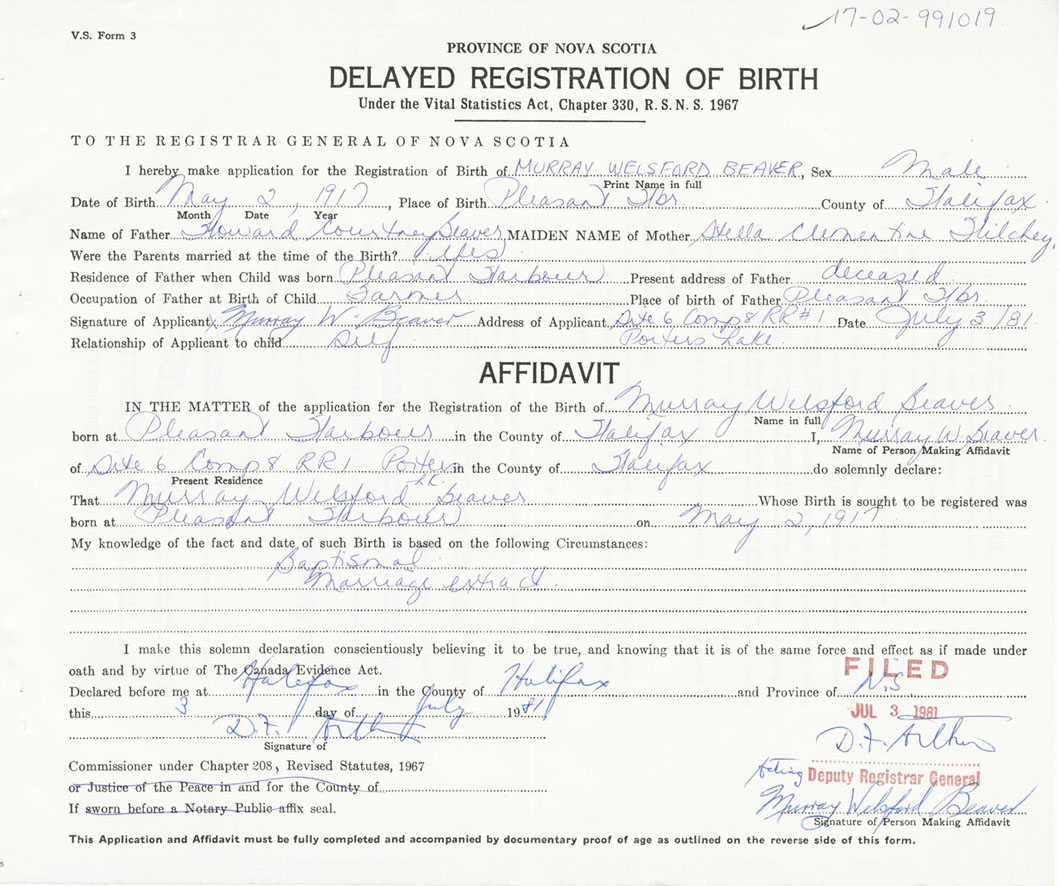 17-02-991019
V.S. Form 3
PROVINCE OF NOVA SCOTIA
DELAYED REGISTRATION OF BIRTH
Under the Vital Statistics Act, Chapter 330, R.S.N.S. 1967
TO THE REGISTRAR GENERAL OF NOVA SCOTIA
I hereby make application for the Registration of Birth of MURRAY WELSFORD BEAVER, Sex Male
Print Name in full
Date of Birth May 2, 1917, Place of Birth Pleasant Hbr County of Halifax
Month Date Year
Name of Father Howard Courtney Beaver, MAIDEN NAME of Mother Stella Clementine Hilchey,
Were the Parents married at the time of the Birth? Yes
Residence of Father when Child was born Pleasant Harbour Present address of Father deceased
Occupation of Father at Birth of Child Farmer Place of birth of Father Pleasant Hbr
Signature of Applicant x Murray W. Beaver Address of Applicant Site 6 Comp 8 RR#1 Date July 3/81
Relationship of Applicant to child Self Porters Lake
AFFIDAVIT
IN THE MATTER of the application for the Registration of the Birth of Murray Welsford Beaver
Name in full
born at Pleasant Harbour in the County of Halifax I, Murray W Beaver
Name of Person Making Affidavit
of Site 6 Comp 8 RR1 Porters Lk. in the County of Halifax do solemnly declare:
Present Residence
That Murray Welsford Beaver Whose Birth is sought to be registered was
born at Pleasant Harbour on May 2, 1917
My knowledge of the fact and date of such Birth is based on the following Circumstances:
Baptismal
Marriage extract
I make this solemn declaration conscientiously believing it to be true, and knowing that it is of the same force and effect as if made under
oath and by virtue of The Canada Evidence Act.
FILED
Declared before me at Halifax in the County of Halifax and Province of N.S.
this 3 day of July 1981
JUL 3 1981
D.F. Arthur
D.F. Arthur
Signature of
Commissioner under Chapter 208, Revised Statutes, 1967
Acting Deputy Registrar General
or Justice of the Peace in and for the County of
Murray Welsford Beaver
If sworn before a Notary Public affix seal.
Signature of Person Making Affidavit
This Application and Affidavit must be fully completed and accompanied by documentary proof of age as outlined on the reverse side of this form.